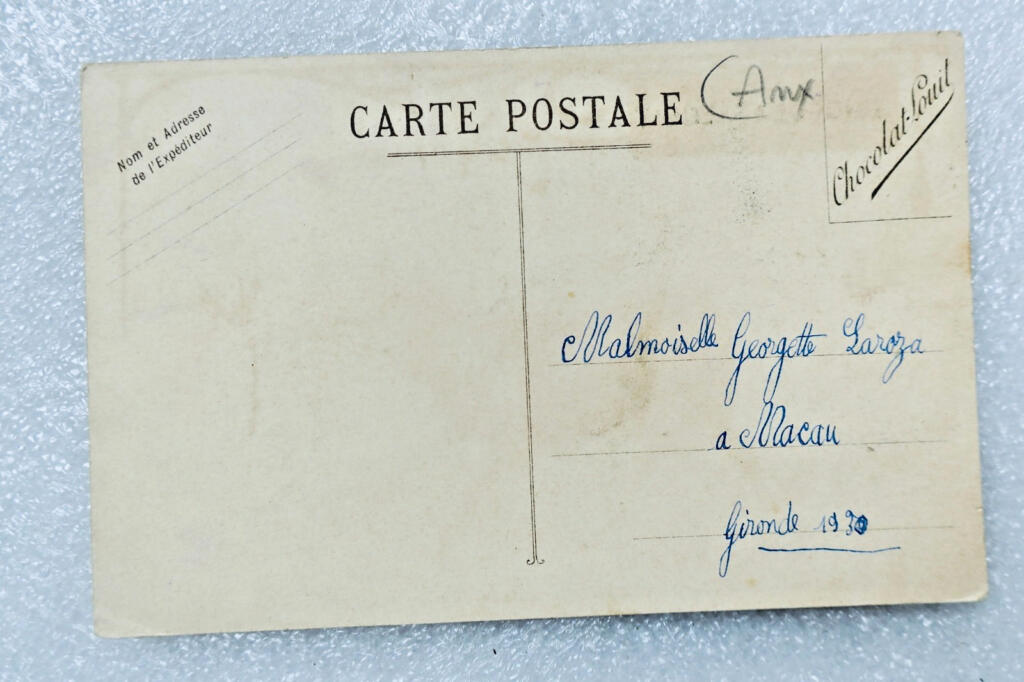 Nom et Adresse
de l'Expéditeur
CARTE POSTALE
Chocolat-Louit
Malmoiselle Georgette Laroza
a Macau
Gironde 1930